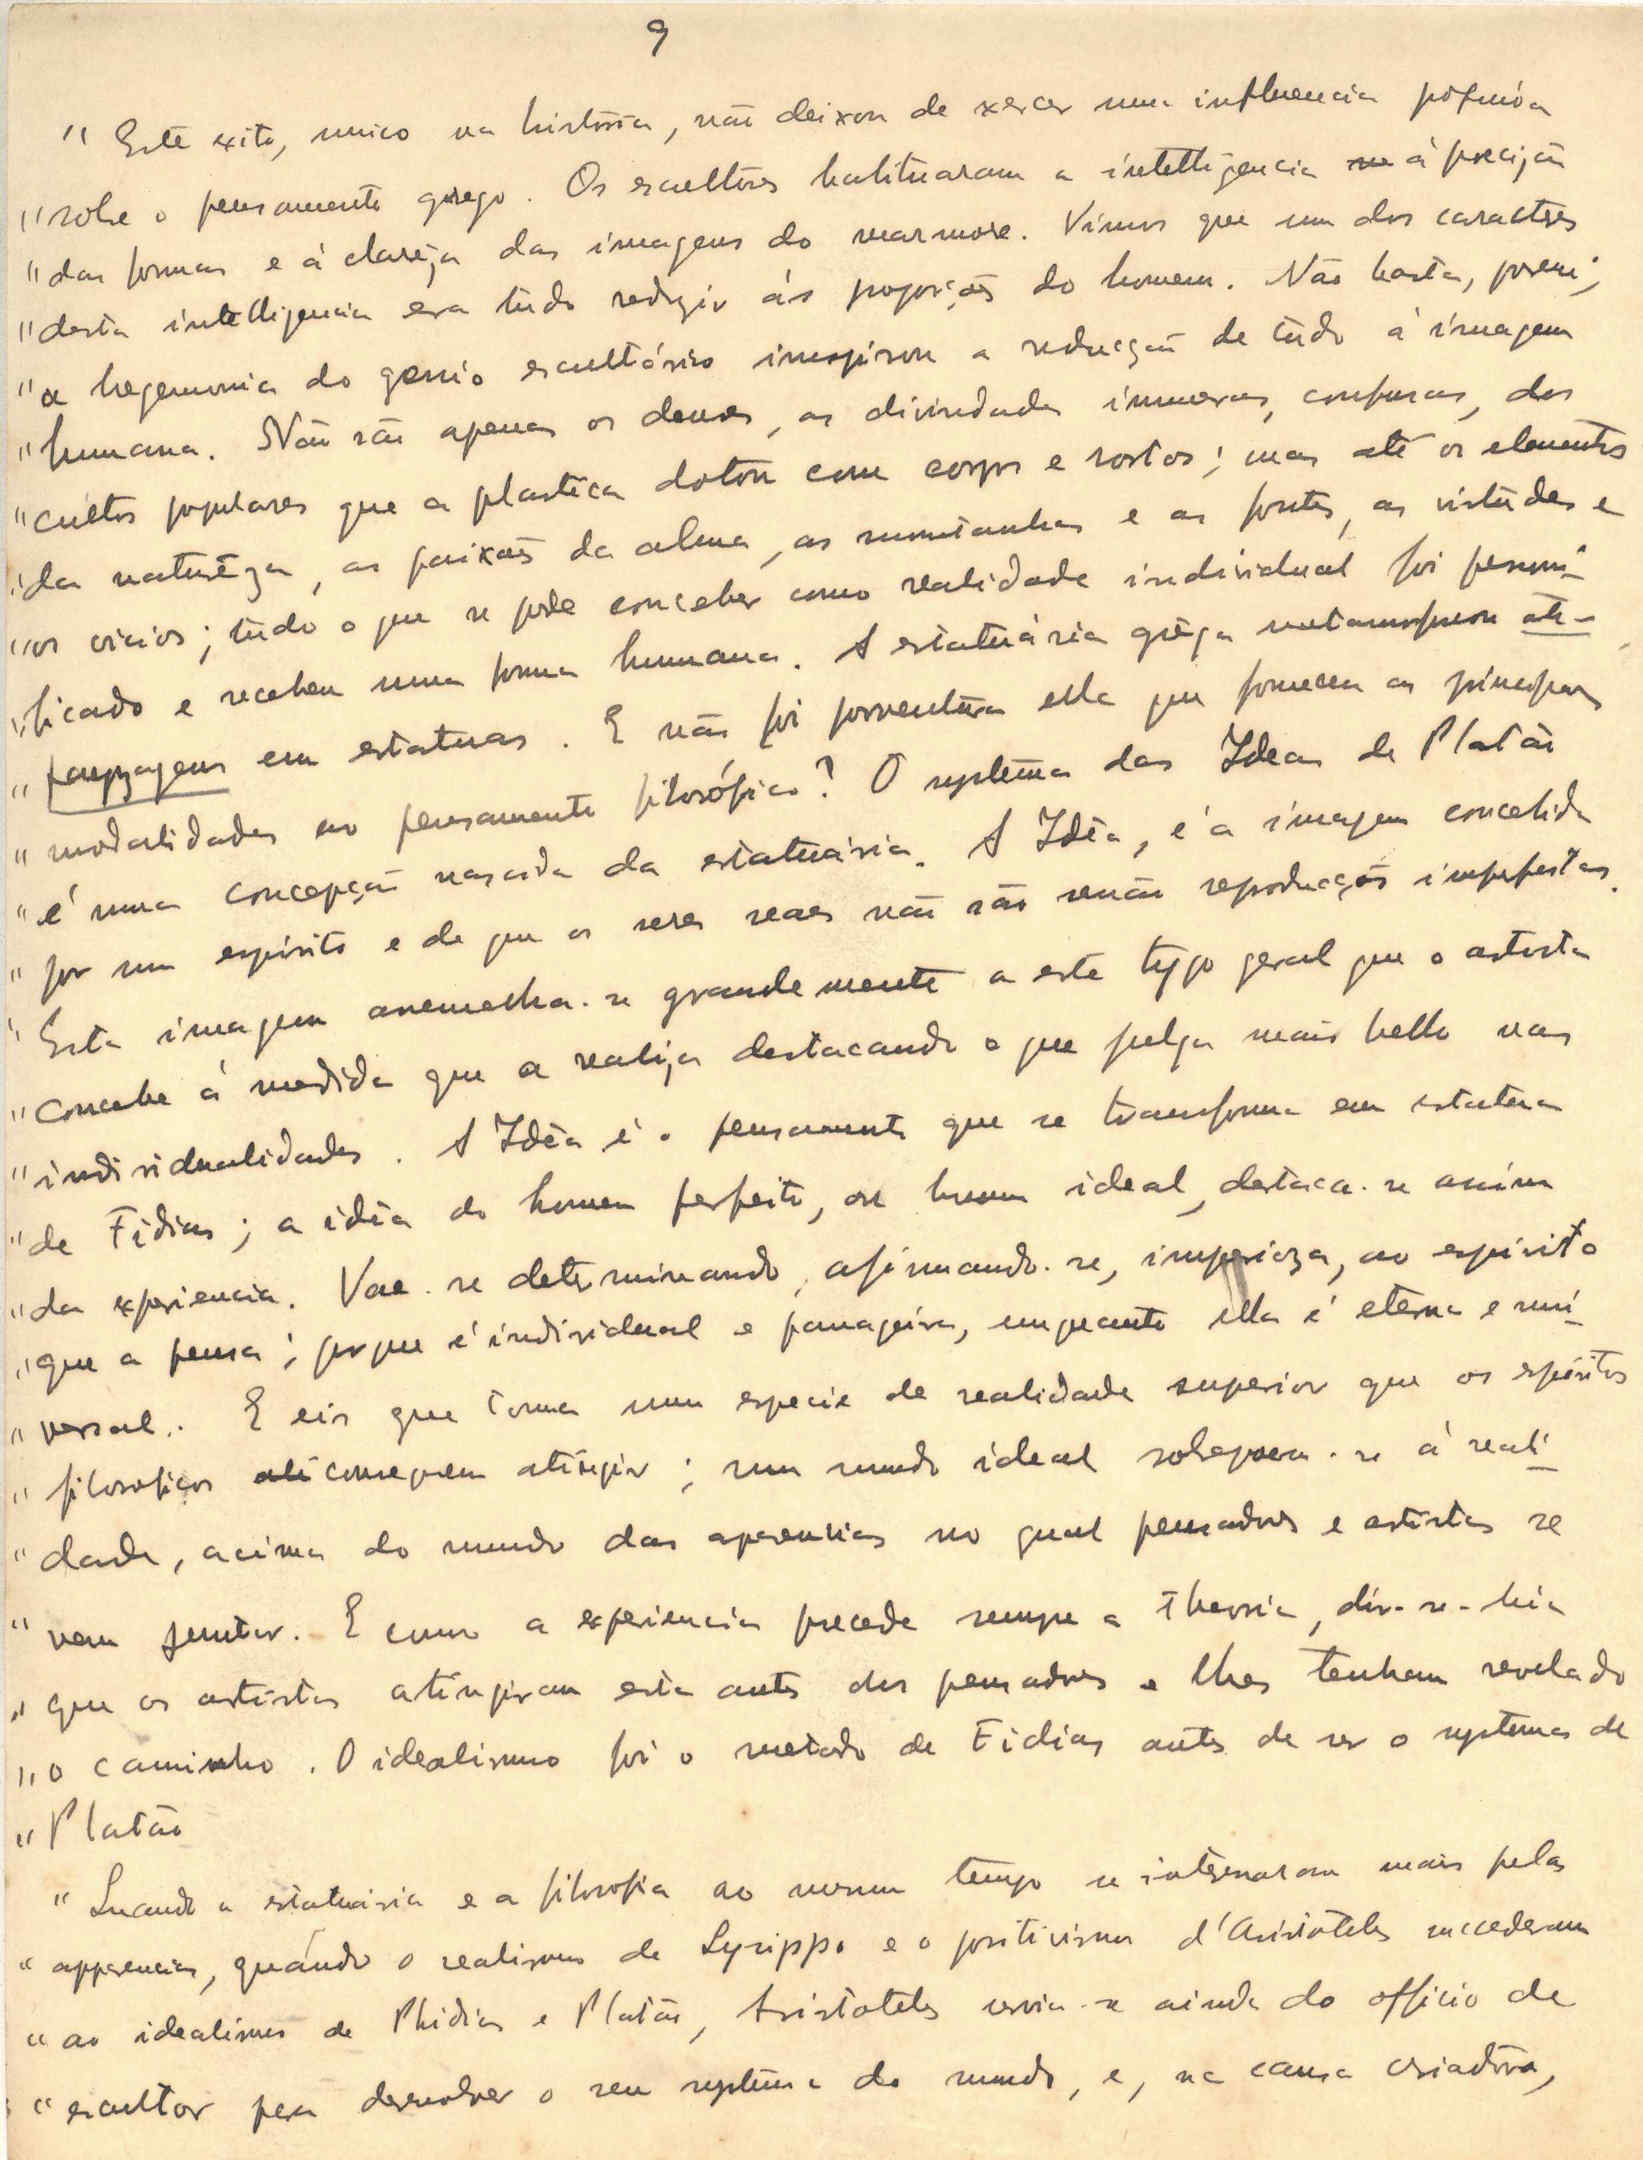 9
" Este exito, unico na história, não deixou de exercer uma influencia pofunda
" sobre o pensamento grego. Os escultores habituaram a intelligencia á precizão
" das formas e á clareza das imagens do marmore. Vimos que um dos caractéres
" desta intelligencia era tudo reduzir ás proporções do homem. Não basta, porem;
" a hegemonia do genio escultórico inspirou a reducção de tudo á imagem
" humana. Não são apenas os deuses, as divindades inumeras, confusas, dos
" cultos populares que a plastica dotou com corpos e rostos; mas até os elementos
" da naturêza, as paixões da alma, as montanhas e as fontes, as virtudes e
" os vicios; tudo o que se pode conceber como realidade individual foi personi-
" ficado e recebeu uma forma humana. A estatuária grêga metamorfoseou até-
" payzagens em estatuas. E não foi porventura ella que forneceu as principaes
" modalidades ao pensamento filosófico? O systema das Ideas de Platão
" é uma concepção nascida da estatuária. A Idêa, é a imagem concebida
" por um espirito e de que os seres reaes não são senão reproducções imperfeitas.
" Esta imagem assemelha-se grandemente a este typo geral que o artista
" concebe á medida que a realiza destacando o que julga mais bello nas
" individualidades. A Idêa é o pensamento que se transforma em estatua
" de Fidias; a idêa do homem perfeito, ou homem ideal, destaca-se assim
" da experiencia. Vae-se determinando, afirmando-se, imperioza, ao espirito
" que a pensa; porque é individual e passageiro, emquanto ella é eterna e uni-
" versal. E eis que toma uma especie de realidade superior que os espiritos
" filosoficos conseguem atingir; um mundo ideal sobrepoem-se á reali-
" dade, acima do mundo das aparencias no qual pensadores e artistas se
" vem juntar. E como a experiencia precede sempre a theoria, dir-se-hia
" que os artistas atingiram este antes dos pensadores e lhes tenham revelado
" o caminho. O idealismo foi o metodo de Fidias antes de ser o systema de
" Platão
" Quando a estatuária e a filosofia ao mesmo tempo se interessaram mais pelas
" apparencias, quando o realismo de Lysippo e o positivismo d'Aristóteles succederam
" ao idealismo de Phidias e Platão, Aristoteles servia-se ainda do officio de
" escultor para desenvolver o seu systema do mundo, e, na causa criadora,